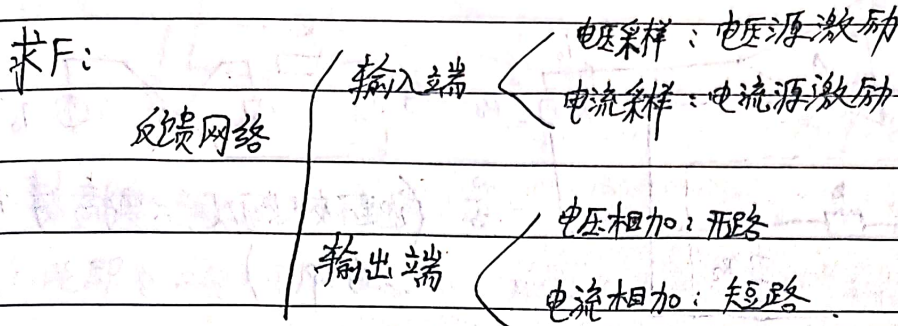 求F:
反馈网络
输入端
电压采样：电压源激励
电流采样：电流源激励
输出端
电压相加：开路
电流相加：短路